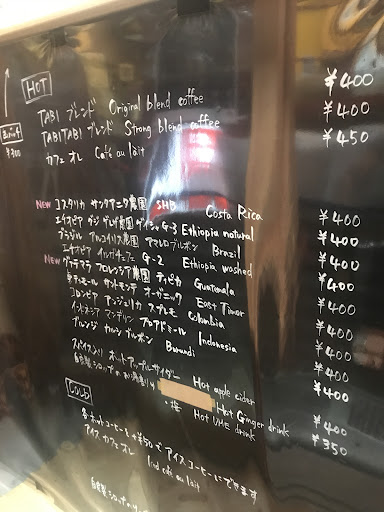 HOT
TABI ブレンド Original blend coffee ¥400
TABITABI ブレンド Strong blend coffee ¥400
カフェオレ Café au lait ¥450
NEW コスタリカ サンタアニタ農園 SHB Costa Rica ¥400
エイオピア グジ ゲレザ農園 ゲイシャ G-3 Ethiopia natural ¥400
ブラジル アマレロブルボン Brazil ¥400
エチオピア イルガチェフェ G-2 Ethiopia washed ¥400
NEW グァテマラ フロレンシア農園 ティピカ Guatemala ¥400
東ティモール サントモンテ オーガニック East Timor ¥400
コロンビア アンジェリカ スプレモ Colombia ¥400
インドネシア マンデリン ブロアドミール Indonesia ¥400
ブルンジ カルシ ブルボン Burundi ¥400
スパイス入り ホットアップルサイダー Hot apple cider ¥400
自家製シロップの Hot Ginger drink ¥400
・梅 Hot UME drink ¥350
COLD
各ホットコーヒー+¥50でアイスコーヒーにできます
アイス カフェオレ Iced café au lait
自家製シロップの
¥700